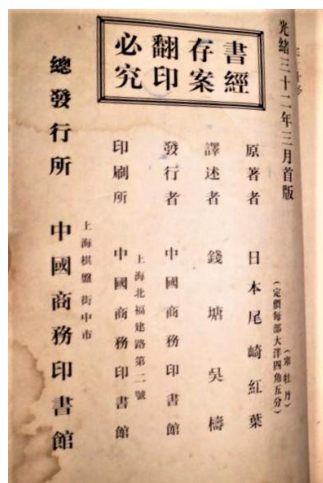 光緒三十二年三月首版
書經
存案
翻印
必究
(寒牡丹)
(定價每部大洋四角五分)
原著者 日本尾崎紅葉
譯述者 錢塘吳檮
發行者 中國商務印書館
上海北福建路第二號
印刷所 中國商務印書館
上海棋盤街中市
總發行所 中國商務印書館